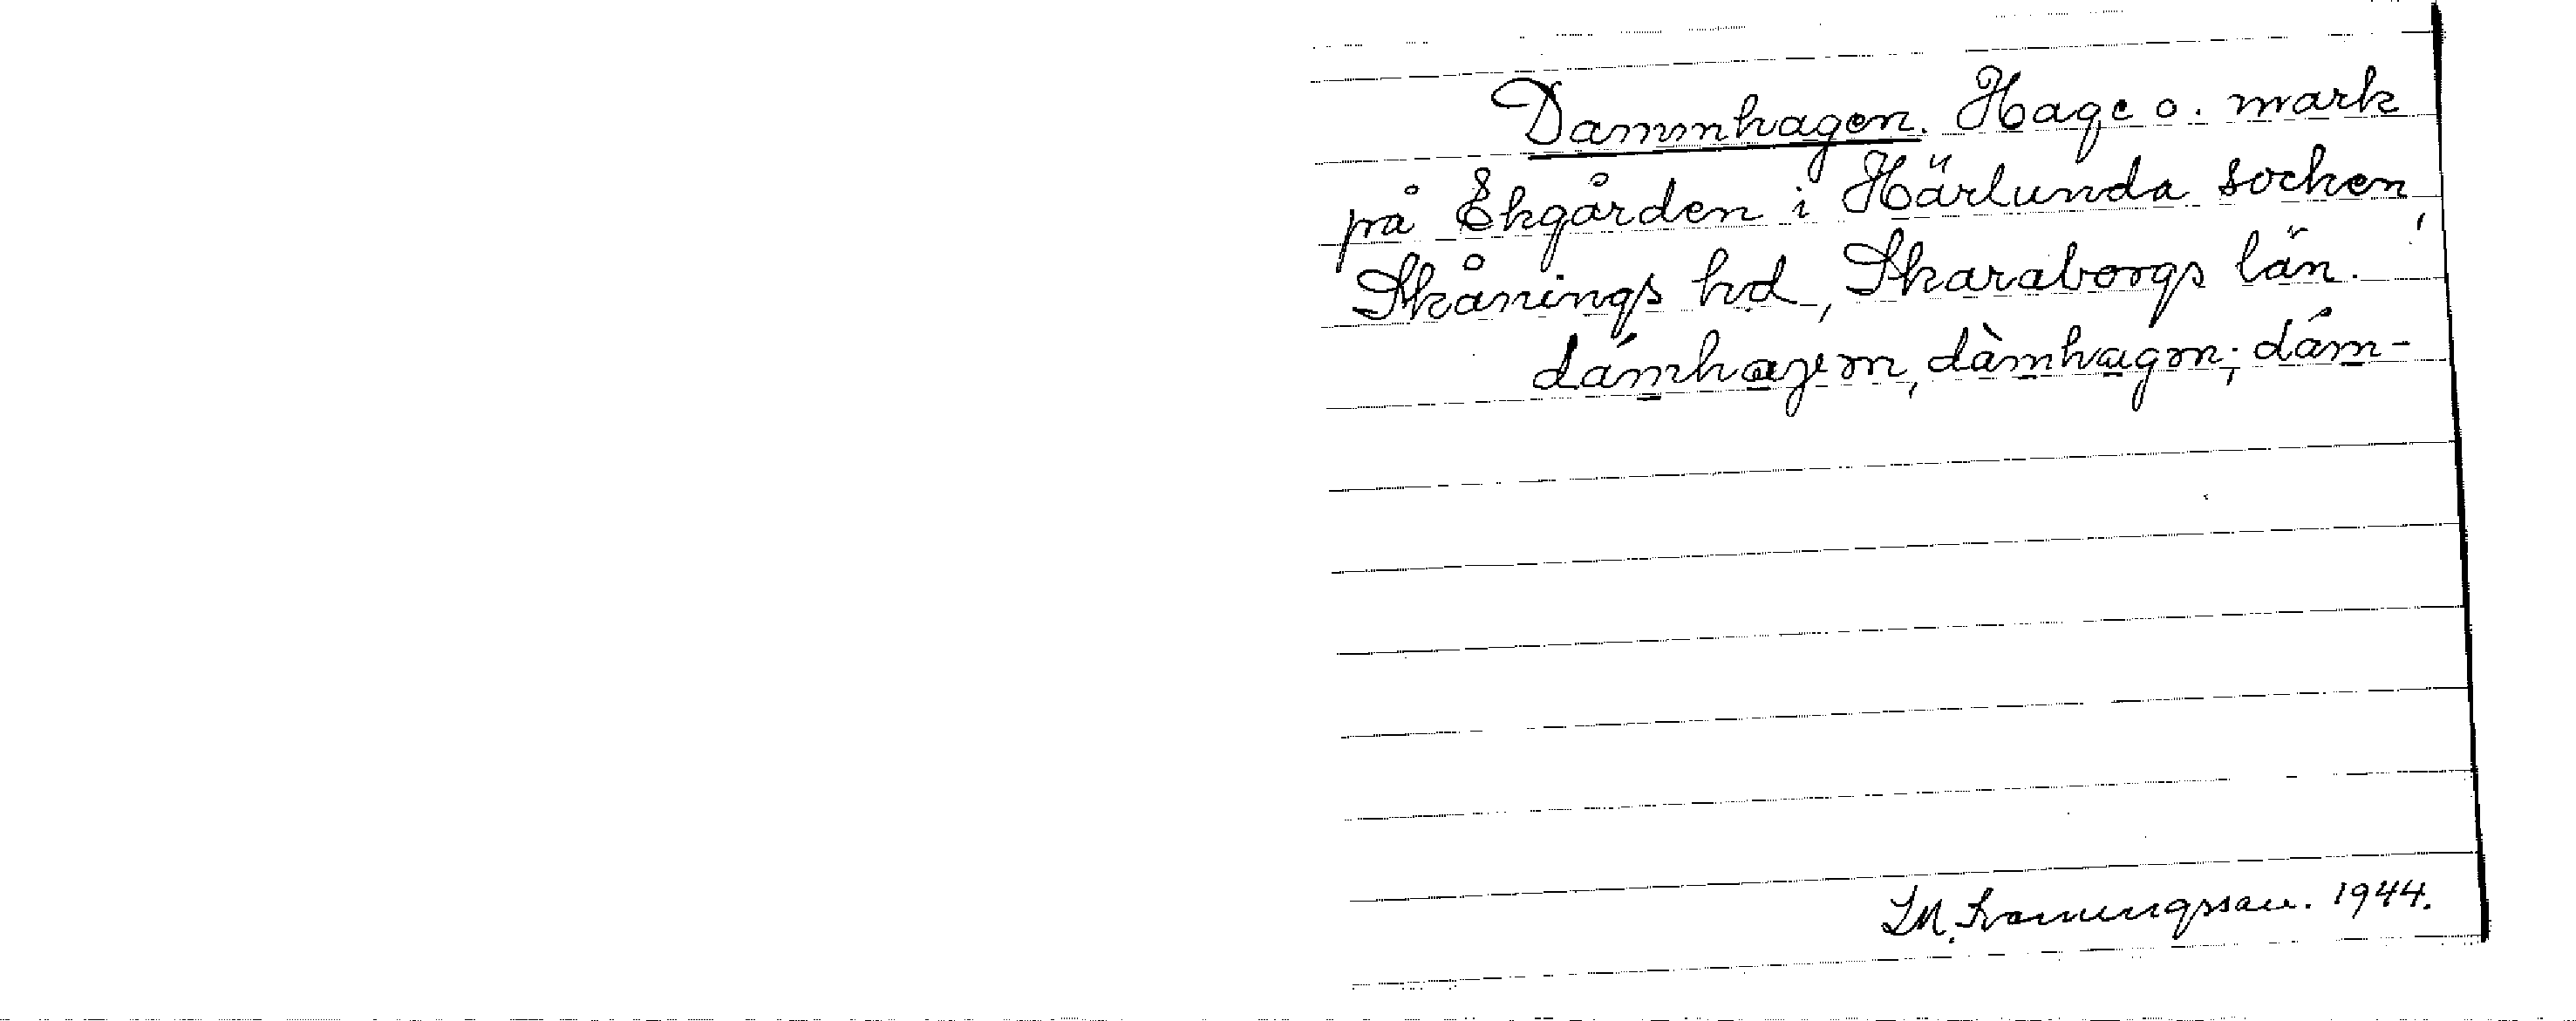 Dammhagen. Hage o. mark
på Ekgården i Härlunda socken,
Skånings hd, Skaraborgs län.
dámhagen, dàmhagen; dám-
1944.